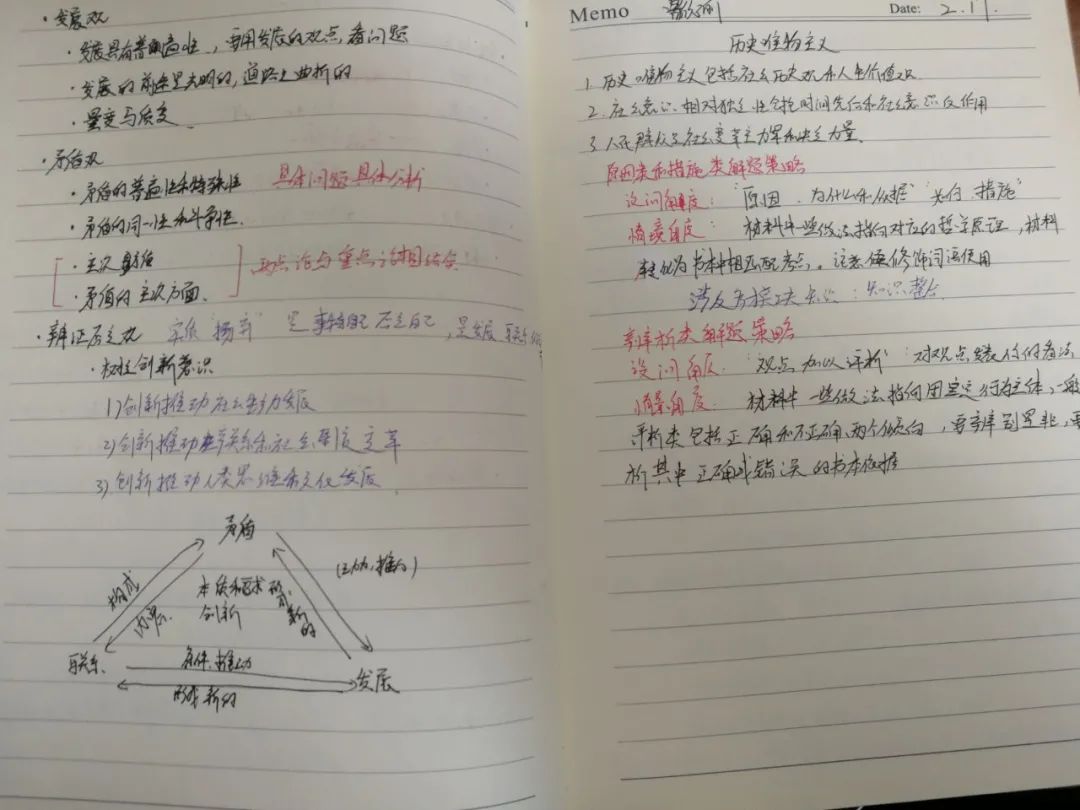 ·发展观
·发展具有普遍性，要用发展的观点看问题
·发展的前途是光明的，道路是曲折的
·量变与质变
·矛盾观
·矛盾的普遍性和特殊性 具体问题具体分析
·矛盾的同一性和斗争性.
·主次矛盾
·矛盾的主次方面.
两点论与重点论相结合
·辩证否定观 实质"扬弃" 是事物自己否定自己，是发展 联系的
·树立创新意识
1)创新推动社会生产力发展
2)创新推动生产关系和社会制度变革
3)创新推动人类思维和文化发展.
矛盾
构成
内容.
本质和要求
创新
形成新的
(动力,推动)
联系.
条件,推动
形成新的
发展
Memo
Date: 2.17.
历史唯物主义
1.历史唯物主义包括社会历史观和人生价值观.
2.社会意识相对独立性包括时间先后和社会意识反作用
3.人民群众是社会变革主力军和决定力量.
原因类和措施类解题策略
设问角度："原因．为什么和依据""如何 措施"
情景角度：材料中一些做法指向对应的哲学原理，材料
转化为书本中相匹配考点。注意 修饰词语使用
知识整合
辨析类解题策略
设问角度："观点加以评析" 对观点 你的看法
情景角度：材料中一些做法指向固定行为主体，一般
评析类包括正确和不正确两个倾向，要辨别是非，要
析其中正确或错误的书本依据